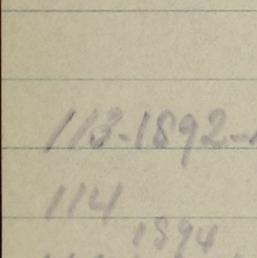 113-1892-
114
1894